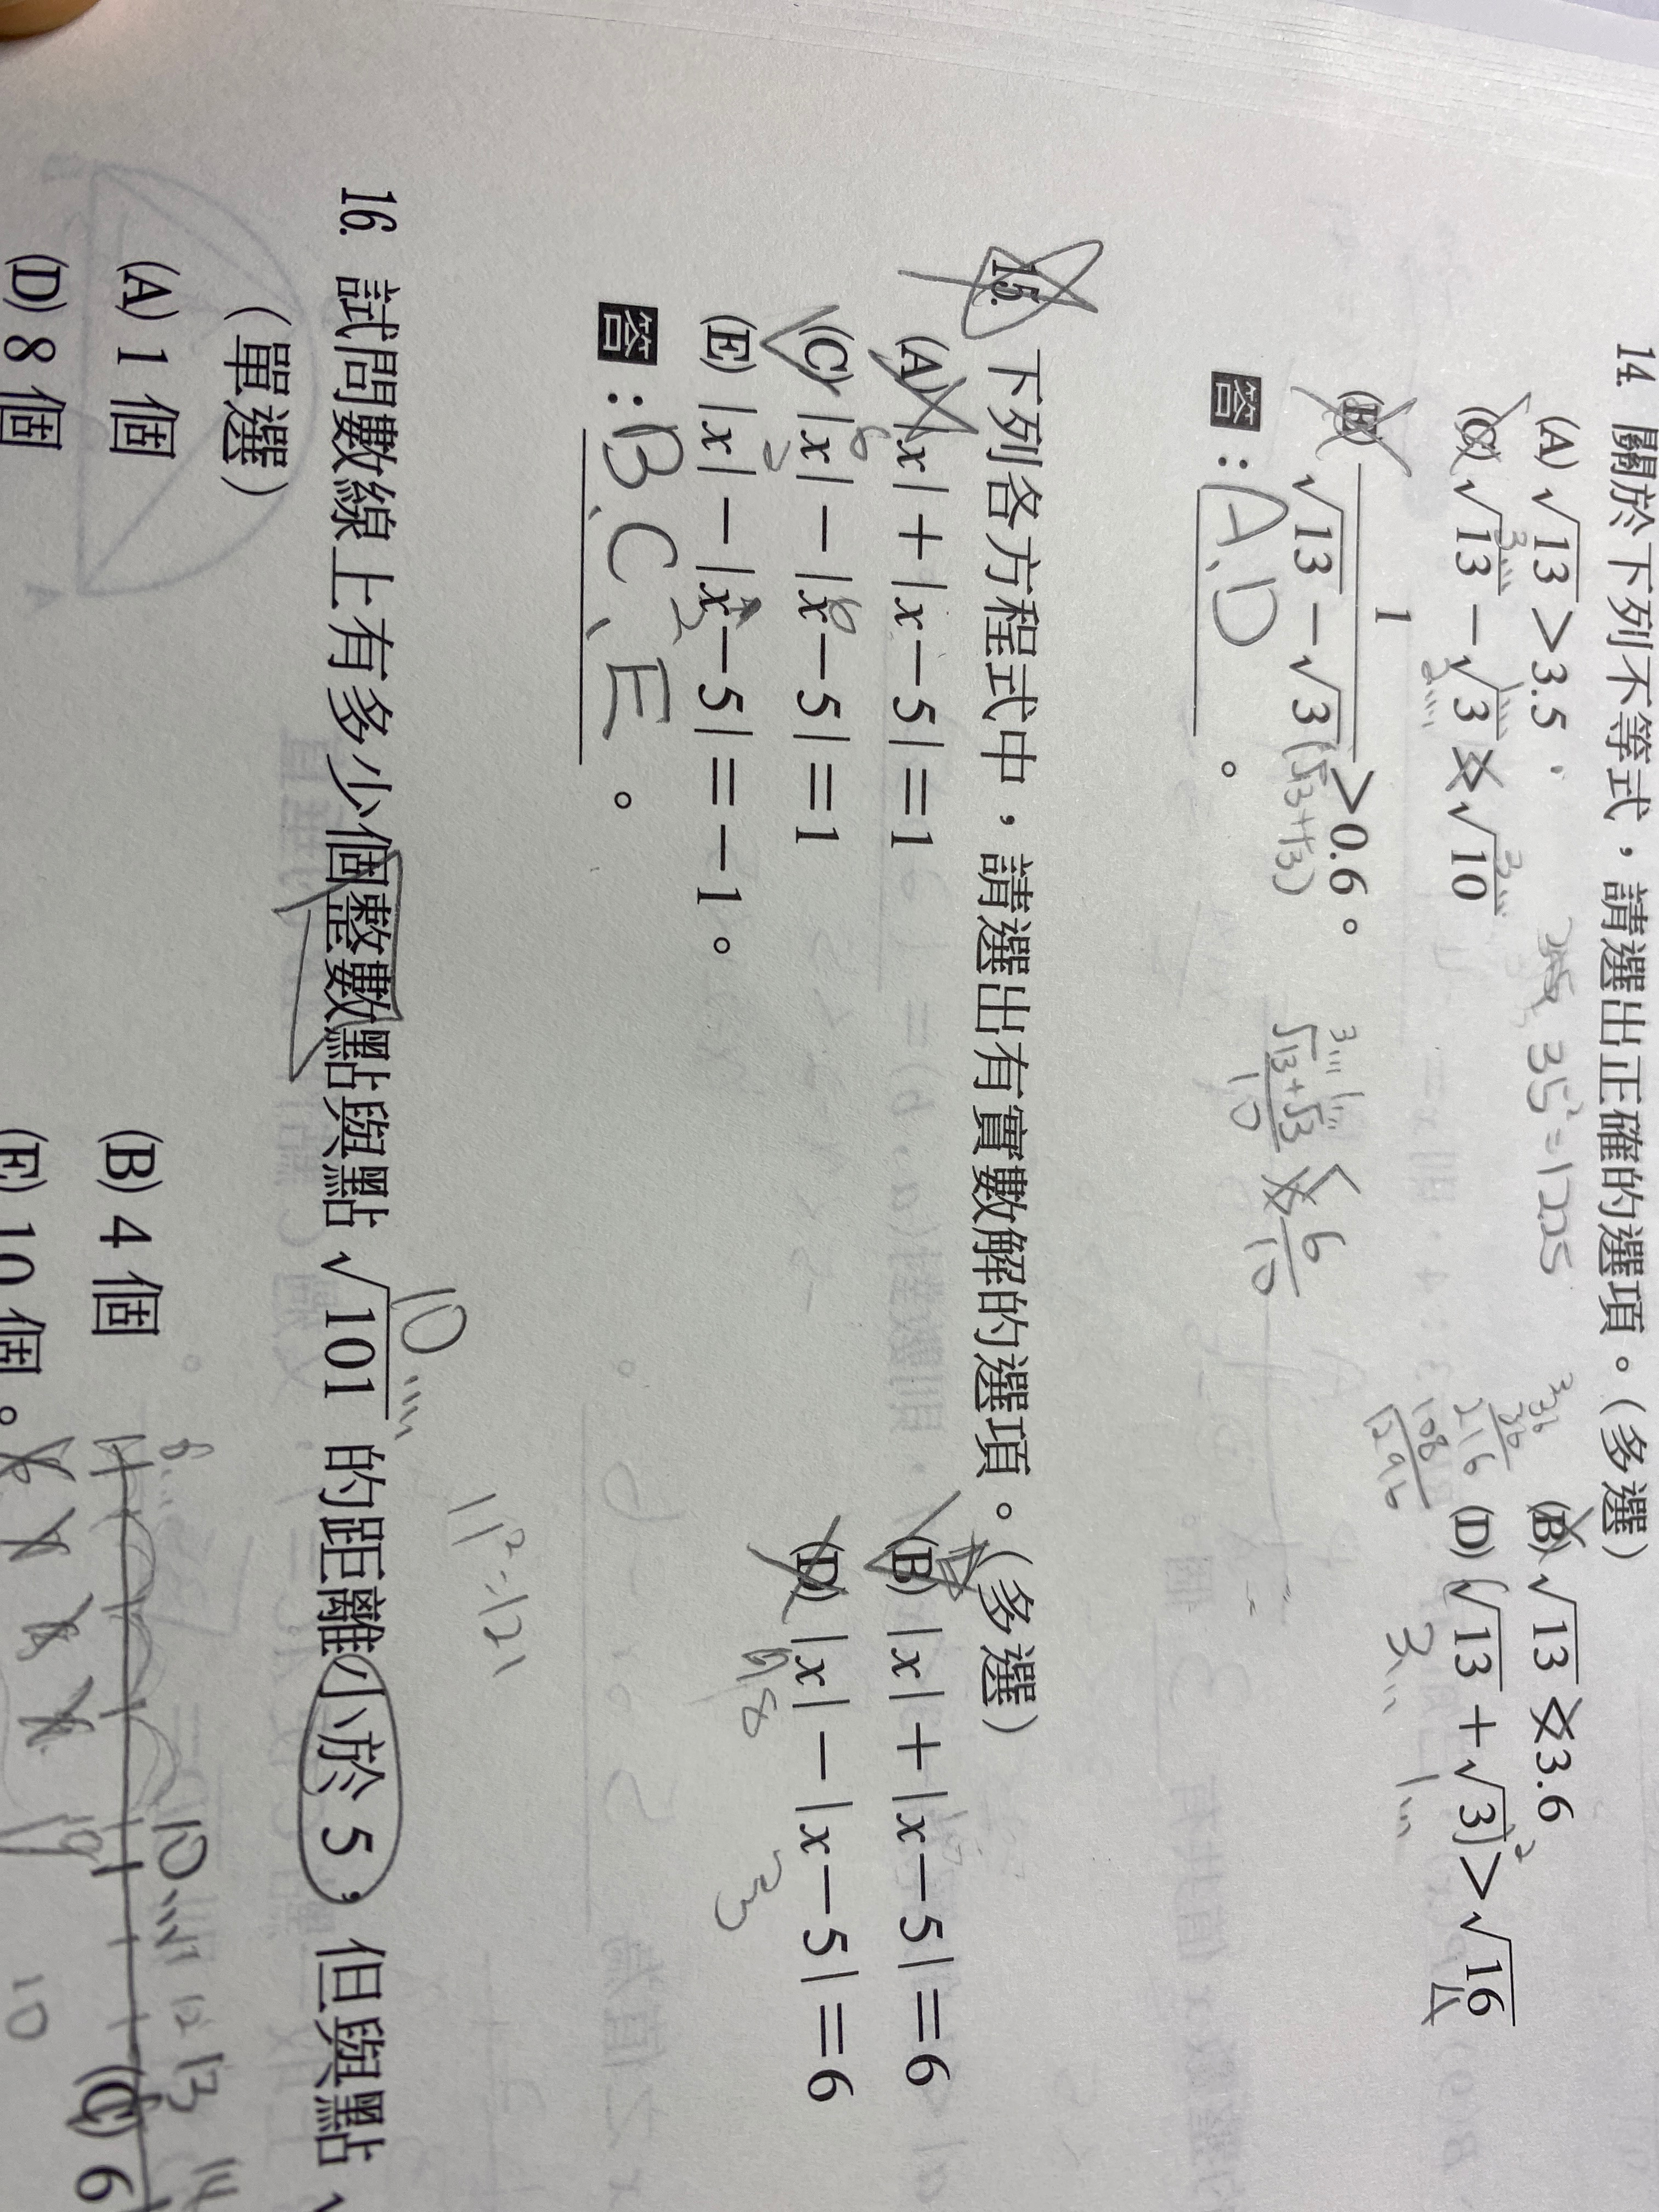 14. 關於下列不等式，請選出正確的選項。（多選）
(A) √13 > 3.5 (B) √13 > 3.6
35² = 1225
36
36
216
108
1296
(C) √13 − √3 > √10 (D) (√13 + √3)² > √16
(E) 1/(√13 − √3) > 0.6。
(√13+√3)
(√13+√3)/10 < 6/10
答：A、D。
15. 下列各方程式中，請選出有實數解的選項。（多選）
(A) |x| + |x − 5| = 1 (B) |x| + |x − 5| = 6
(C) |x| − |x − 5| = 1 (D) |x| − |x − 5| = 6
(E) |x| − |x − 5| = −1。
答：B、C、E。
11² = 121
10
16. 試問數線上有多少個整數點與點 √101 的距離小於 5，但與點
（單選）
10 11 12 13 14
(A) 1 個 (B) 4 個 (C) 6
(D) 8 個 (E) 10 個。
10